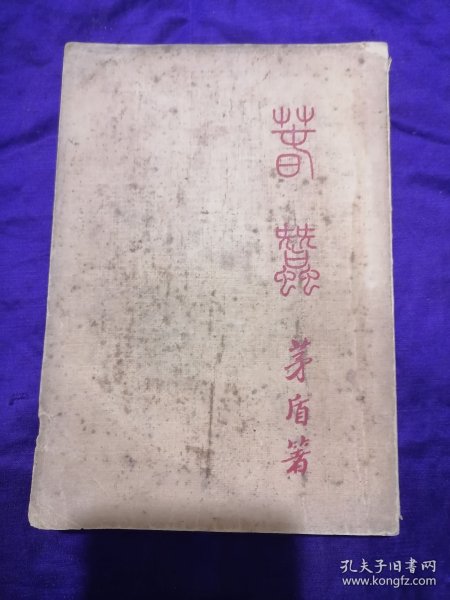 春蠶
茅盾著
孔夫子旧书网
www.kongfz.com